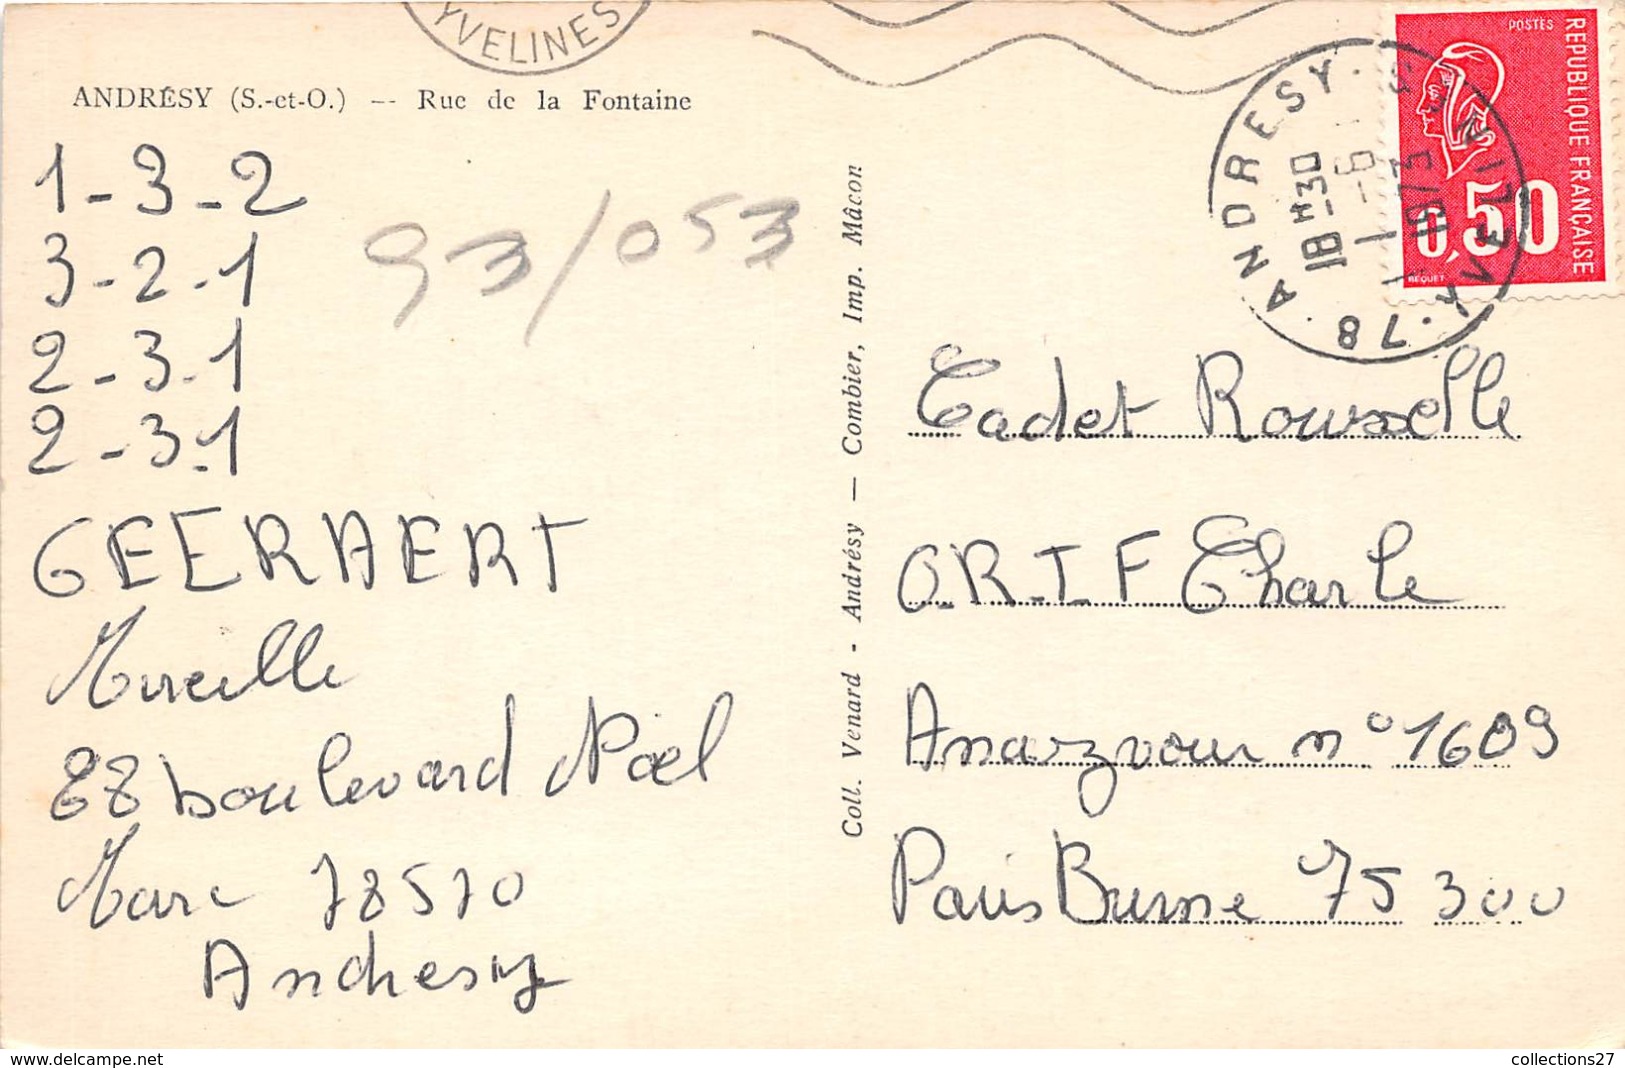 YVELINES
ANDRÉSY (S.-et-O.) -- Rue de la Fontaine
1-3-2
3-2-1
2-3-1
2-3-1
93/053
GEERAERT
Mireille
28 boulevard Noel
Marc 78570
Andresy
Coll. Venard - Andrésy — Combier, Imp. Mâcon
POSTES
REPUBLIQUE FRANÇAISE
0,50
BEQUET
ANDRESY
78 . YVELINES
18H30
-6
1973
Cadet Rousselle
O.R.T.F Charle
Anarzvour n° 1609
Paris Brune 75 300
www.delcampe.net
collections27